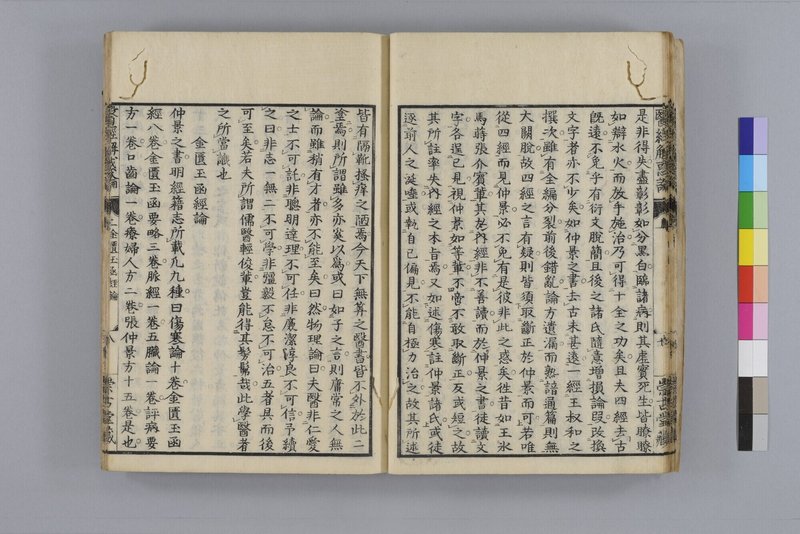 是非得失盡彰彰如分黑白臨諸病則其虛實死生皆瞭瞭
如辯水火而放手施治乃可得十全之功矣且夫四經去古
既遠不免乎有衍文脫簡且後之諸氏隨意增損論說改換
文字者亦不少矣如仲景之書去古未甚遠一經王叔和之
撰次雖有全編分裂前後錯亂論方遺漏而熟諳通篇則無
大關脫故四經之言有疑則皆須取斷正於仲景而可若唯
從四經而見仲景必不免有是彼非此之惑矣徃昔如王冰
馬蒔張介賓輩其於內經非不善讀而於仲景之書徒讀文
字各逞己見視仲景如等輩不啻不敢取斷正反或短之故
其所註率失內經之本旨焉又如述傷寒註仲景諸氏或徒
逐前人之涎唾或執自己偏見不能自極力治之故其所述
皆有隔靴搔痒之陋焉今天下無筭之醫書皆不外於此二
塗焉則所謂雖多亦奚以爲或曰如子之言則庸常之人無
論而雖稍有才者亦不能至矣曰然物理論曰夫醫非仁愛
之士不可託非聰明達理不可任非廉潔淳良不可信予續
之曰非志一無二不可學非彊毅不怠不可治五者具而後
可至矣若夫所謂儒醫輕俊輩豈能得其髣髴哉此學醫者
之所當識也
金匱玉函經論
仲景之書明經籍志所載凡九種曰傷寒論十卷金匱玉函
經八卷金匱玉函要略三卷脉經一卷五臟論一卷評病要
方一卷口齒論一卷療婦人方二卷張仲景方十五卷是也